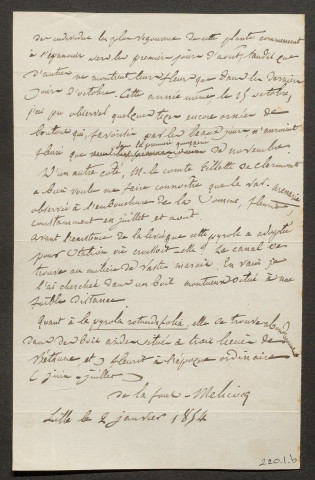 des individus les plus vigoureux de cette plante commencent
à s'épanouir vers les premiers jours d'août, tandis que
d'autres ne montrent leur fleur que dans les derniers
jours d'octobre. Cette année même le 25 octobre,
j'ai pu observer quelques tiges encore ornées de
boutons qui, favorisés par les beaux jours n'auraient
fleuri que dans la première quinzaine de novembre.
D'un autre côté, M. le comte Gillette de Clermont
a bien voulu me faire connoître que la var. arenaria
observée à l'embouchure de la Somme, fleurit
constamment en juillet et août.
avant l'existence de la
pour station où croissoit-elle ? Le canal se
trouve au milieu de vastes marais. En vain je
l'ai cherchée dans un bois montueux situé à une
faible distance.
Quant à la pyrola rotundifolia, elle se trouve
dans des bois arides situés à trois lieues de
Béthune, et fleurit à l'époque ordinaire
(juin - juillet)
de la fons - Melicocq
Lille le 2 janvier 1854
220.1.b